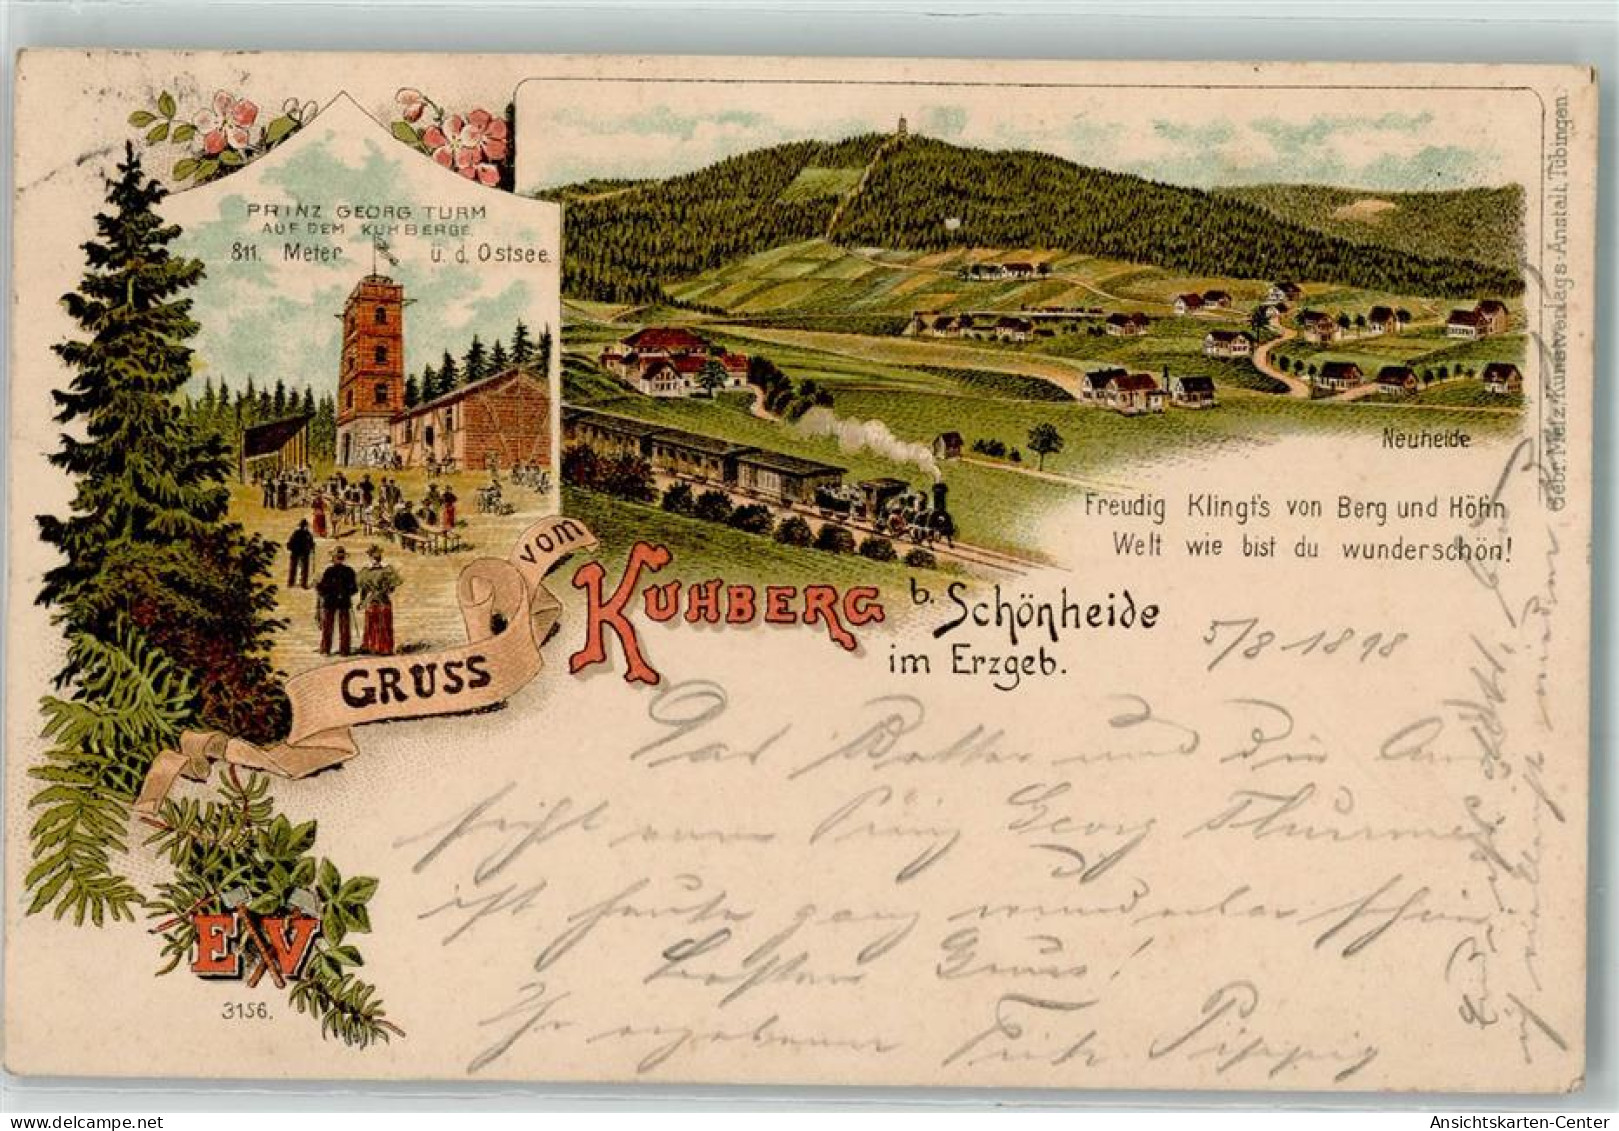 PRINZ GEORG TURM
AUF DEM KUHBERGE
811. Meter ü. d. Ostsee.
Neuheide
Freudig Klingt's von Berg und Höhn
Welt wie bist du wunderschön!
GRUSS vom KUHBERG b. Schönheide
im Erzgeb.
5/8 1898
Das Wetter und die Aus
sicht vom Prinz Georg Thurme
ist heute ganz wunderbar schön.
Besten Gruss!
Ihr ergebener Fritz Pippig
EV
3156.
Gebr. Metz, Kunstverlags-Anstalt, Tübingen.
Ansichtskarten-Center